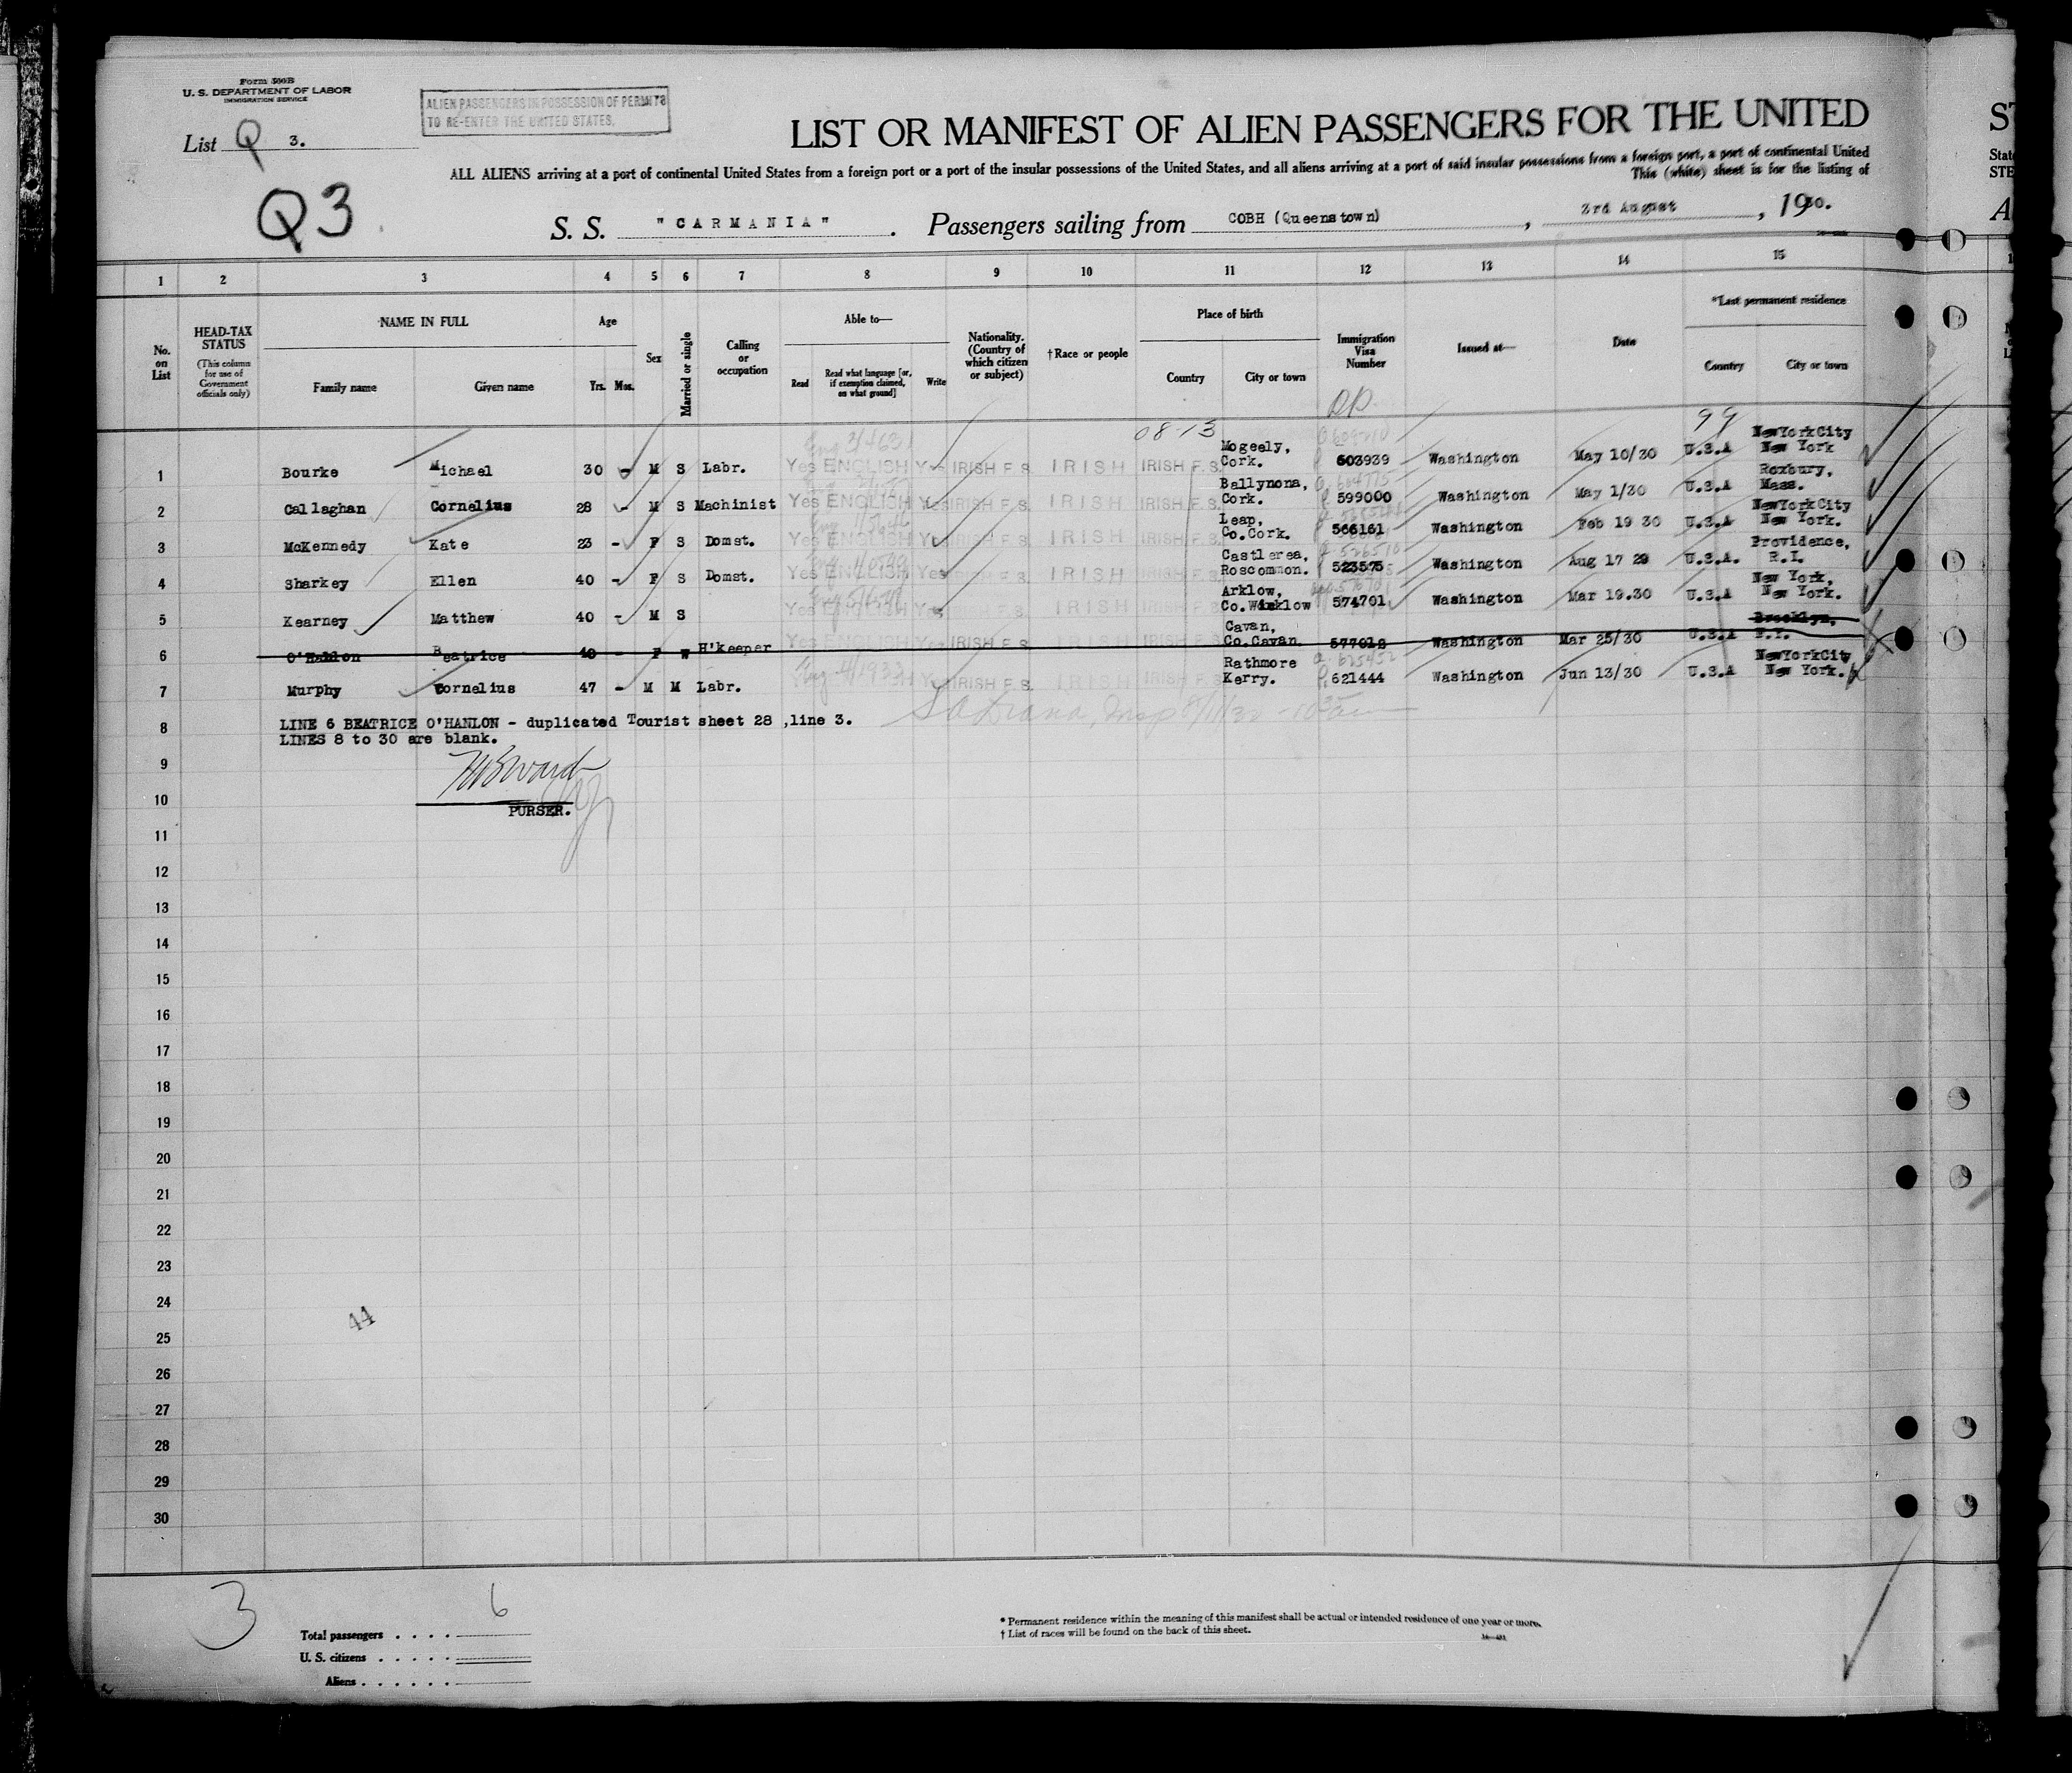 Form 500B
U. S. DEPARTMENT OF LABOR
IMMIGRATION SERVICE
ALIEN PASSENGERS IN POSSESSION OF PERMITS
TO RE-ENTER THE UNITED STATES.
List Q 3.
Q3
LIST OR MANIFEST OF ALIEN PASSENGERS FOR THE UNITED
ALL ALIENS arriving at a port of continental United States from a foreign port or a port of the insular possessions of the United States, and all aliens arriving at a port of said insular possessions from a foreign port, a port of continental United
This (white) sheet is for the listing of
S. S. "CARMANIA". Passengers sailing from COBH (Queenstown), 3rd August, 1930.
1 2 3 4 5 6 7 8 9 10 11 12 13 14 15
No. on List
HEAD-TAX STATUS
(This column for use of Government officials only)
NAME IN FULL
Family name Given name
Age
Yrs. Mos.
Sex
Married or single
Calling or occupation
Able to—
Read Read what language [or, if exemption claimed, on what ground] Write
Nationality. (Country of which citizen or subject)
†Race or people
Place of birth
Country City or town
Immigration Visa Number
Issued at—
Date
*Last permanent residence
Country City or town
08-13 99
1 Bourke Michael 30 - M S Labr. Yes ENGLISH Yes IRISH F.S. IRISH IRISH F.S. Mogeely, Cork. 603939 Washington May 10/30 U.S.A NewYorkCity New York
2 Callaghan Cornelius 28 - M S Machinist Yes ENGLISH Yes IRISH F.S. IRISH IRISH F.S. Ballynona, Cork. 599000 Washington May 1/30 U.S.A Roxbury, Mass.
3 McKennedy Kate 23 - F S Domst. Yes ENGLISH Yes IRISH F.S. IRISH IRISH F.S. Leap, Co.Cork. 566161 Washington Feb 19 30 U.S.A NewYorkCity New York.
4 Sharkey Ellen 40 - F S Domst. Yes ENGLISH Yes IRISH F.S. IRISH IRISH F.S. Castlerea, Roscommon. 523575 Washington Aug 17 29 U.S.A. Providence, R.I.
5 Kearney Matthew 40 - M S Yes ENGLISH Yes IRISH F.S. IRISH IRISH F.S. Arklow, Co.Wicklow 574701 Washington Mar 19.30 U.S.A New York, New York.
6 O'Hanlon Beatrice 40 - F W H'keeper Yes ENGLISH Yes IRISH F.S. IRISH IRISH F.S. Cavan, Co.Cavan. 577012 Washington Mar 25/30 U.S.A Brooklyn, N.Y.
7 Murphy Cornelius 47 - M M Labr. Yes IRISH F.S. IRISH IRISH F.S. Rathmore Kerry. 621444 Washington Jun 13/30 U.S.A NewYorkCity New York.
8 LINE 6 BEATRICE O'HANLON - duplicated Tourist sheet 28 ,line 3.
LINES 8 to 30 are blank.
9
10
PURSER.
11
12
13
14
15
16
17
18
19
20
21
22
23
24
44
25
26
27
28
29
30
3
6
Total passengers
U. S. citizens
Aliens
* Permanent residence within the meaning of this manifest shall be actual or intended residence of one year or more.
† List of races will be found on the back of this sheet.